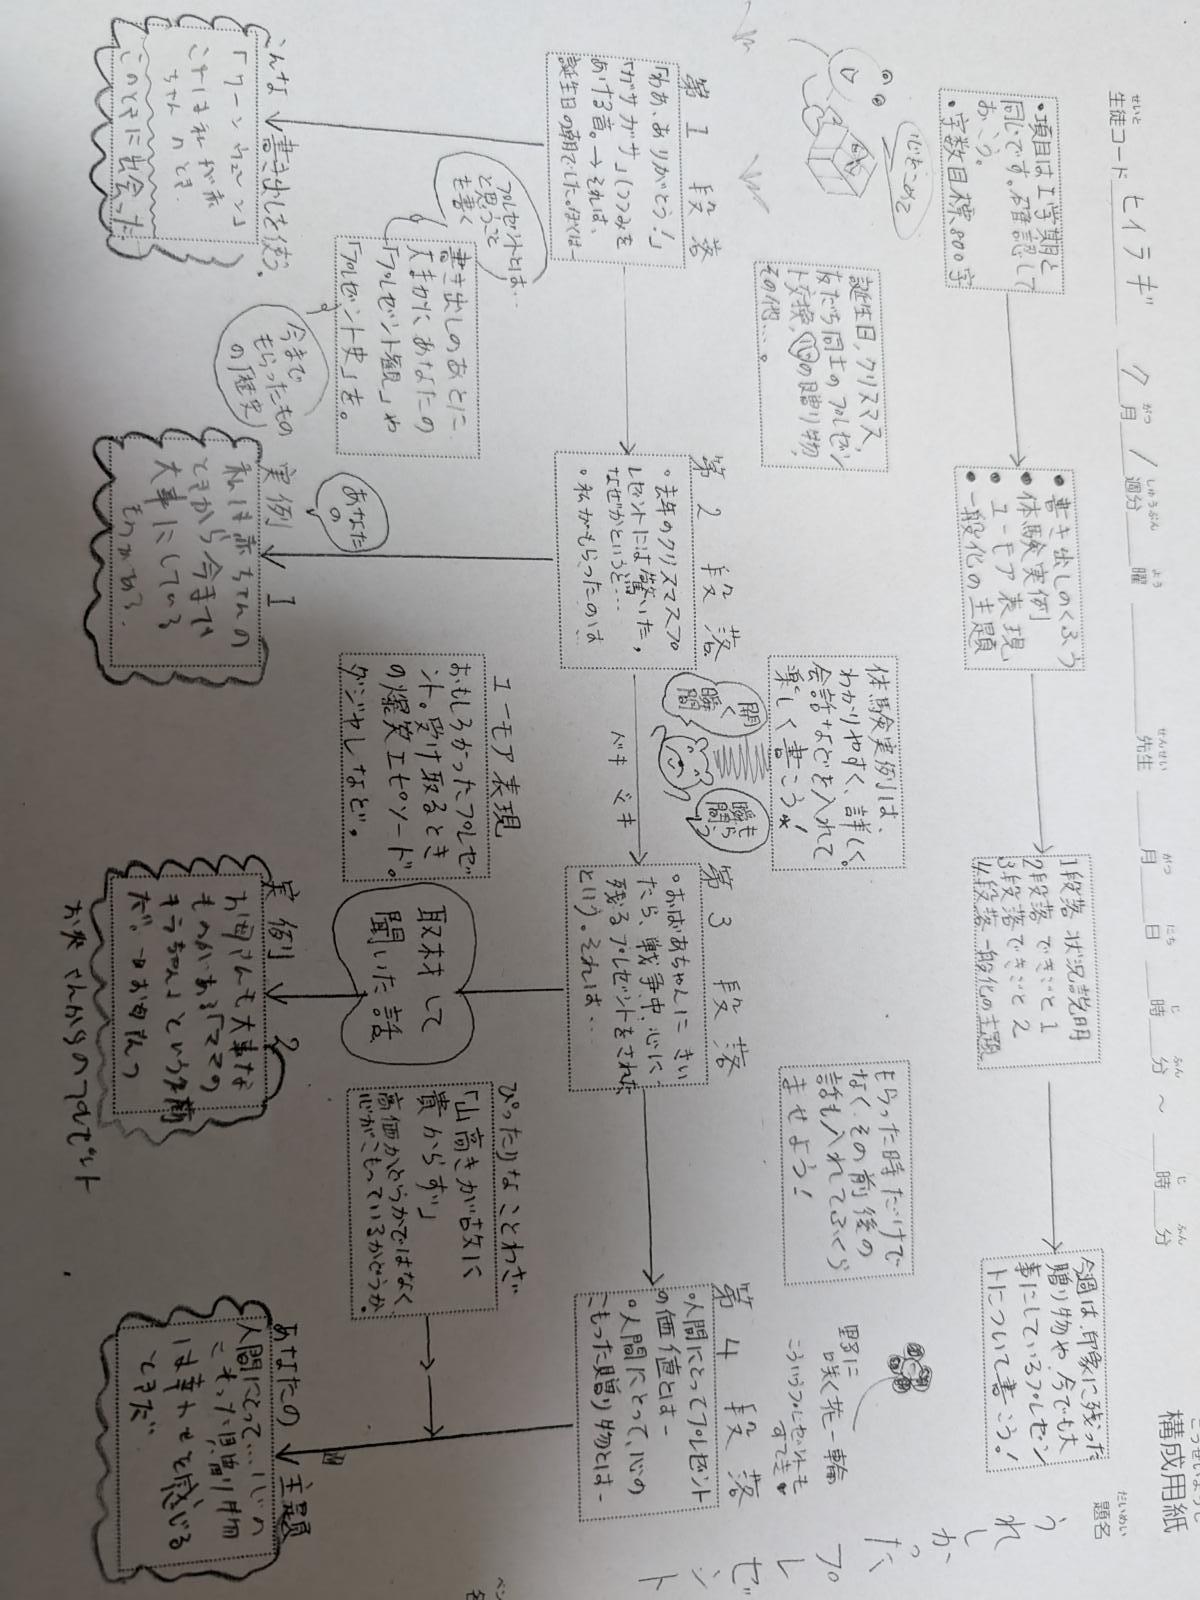 構成用紙
こうせいようし
題名
だいめい
うれしかったプレゼント
生徒コード ヒイラギ
せいと
月 週分 曜 先生 月 日 時 分 ～ 時 分
がつ しゅうぶん よう せんせい がつ にち じ ふん じ ふん
今週は、印象に残った
贈り物や、今でも大
事にしているプレゼン
トについて書こう！
1段落 状況説明
2段落 できごと1
3段落 できごと2
4段落 一般化の主題
・書き出しのくふう
・体験実例
・ユーモア表現
・一般化の主題
・項目は1学期と
同じです。確認して
おこう。
・字数目標800字
心をこめて
誕生日、クリスマス、
友だち同士のプレゼン
ト交換、心の贈り物、
その他…。
体験実例は、
わかりやすく、詳しく。
会話などを入れて
楽しく書こう！
もらった時だけで
なく、その前後の
話も入れてふくら
ませよう！
野に
咲く花一輪
こういうプレゼントも
すてき
第1段落
「わあ、ありがとう！」
「ガサガサ」(つつみを
あける音。→それは、
誕生日の朝でした。ぼくは…
第2段落
・去年のクリスマスプ
レゼントには驚いた。
なぜかというと…
・私がもらったのは…
開く
瞬間
瞬も
ドキドキ
第3段落
・おばあちゃんにきい
たら、戦争中、心に
残るプレゼントをされた
という。それは…
第4段落
・人間にとってプレゼント
の価値とは…
・人間にとって、心の
こもった贈り物とは…
プレゼントとは…
と思うこと
も書く
書き出しのあとに
大まかにあなたの
「プレゼント観」や
「プレゼント史」を。
今まで
もらったもの
の「歴史」
ユーモア表現
おもしろかったプレゼ
ント。受け取るとき
の爆笑エピソード。
ダジャレなど。
取材して
聞いた話
ぴったりなことわざ
「山高きが故に
貴からず」
高価かどうかではなく
心がこもっているかどうか。
こんな書き出しを使う。
これは私が赤
ちゃんのとき
このときに出会った
あなたの
実例1
私は赤ちゃんの
ときから今まで
大事にしている
ものがある。
実例2
お母さんも大事な
ものがある「ママの
キラちゃん」という名前
だ。
あなたの主題
人間にとって…心の
こもった贈り物
は幸せを感じる
ときだ